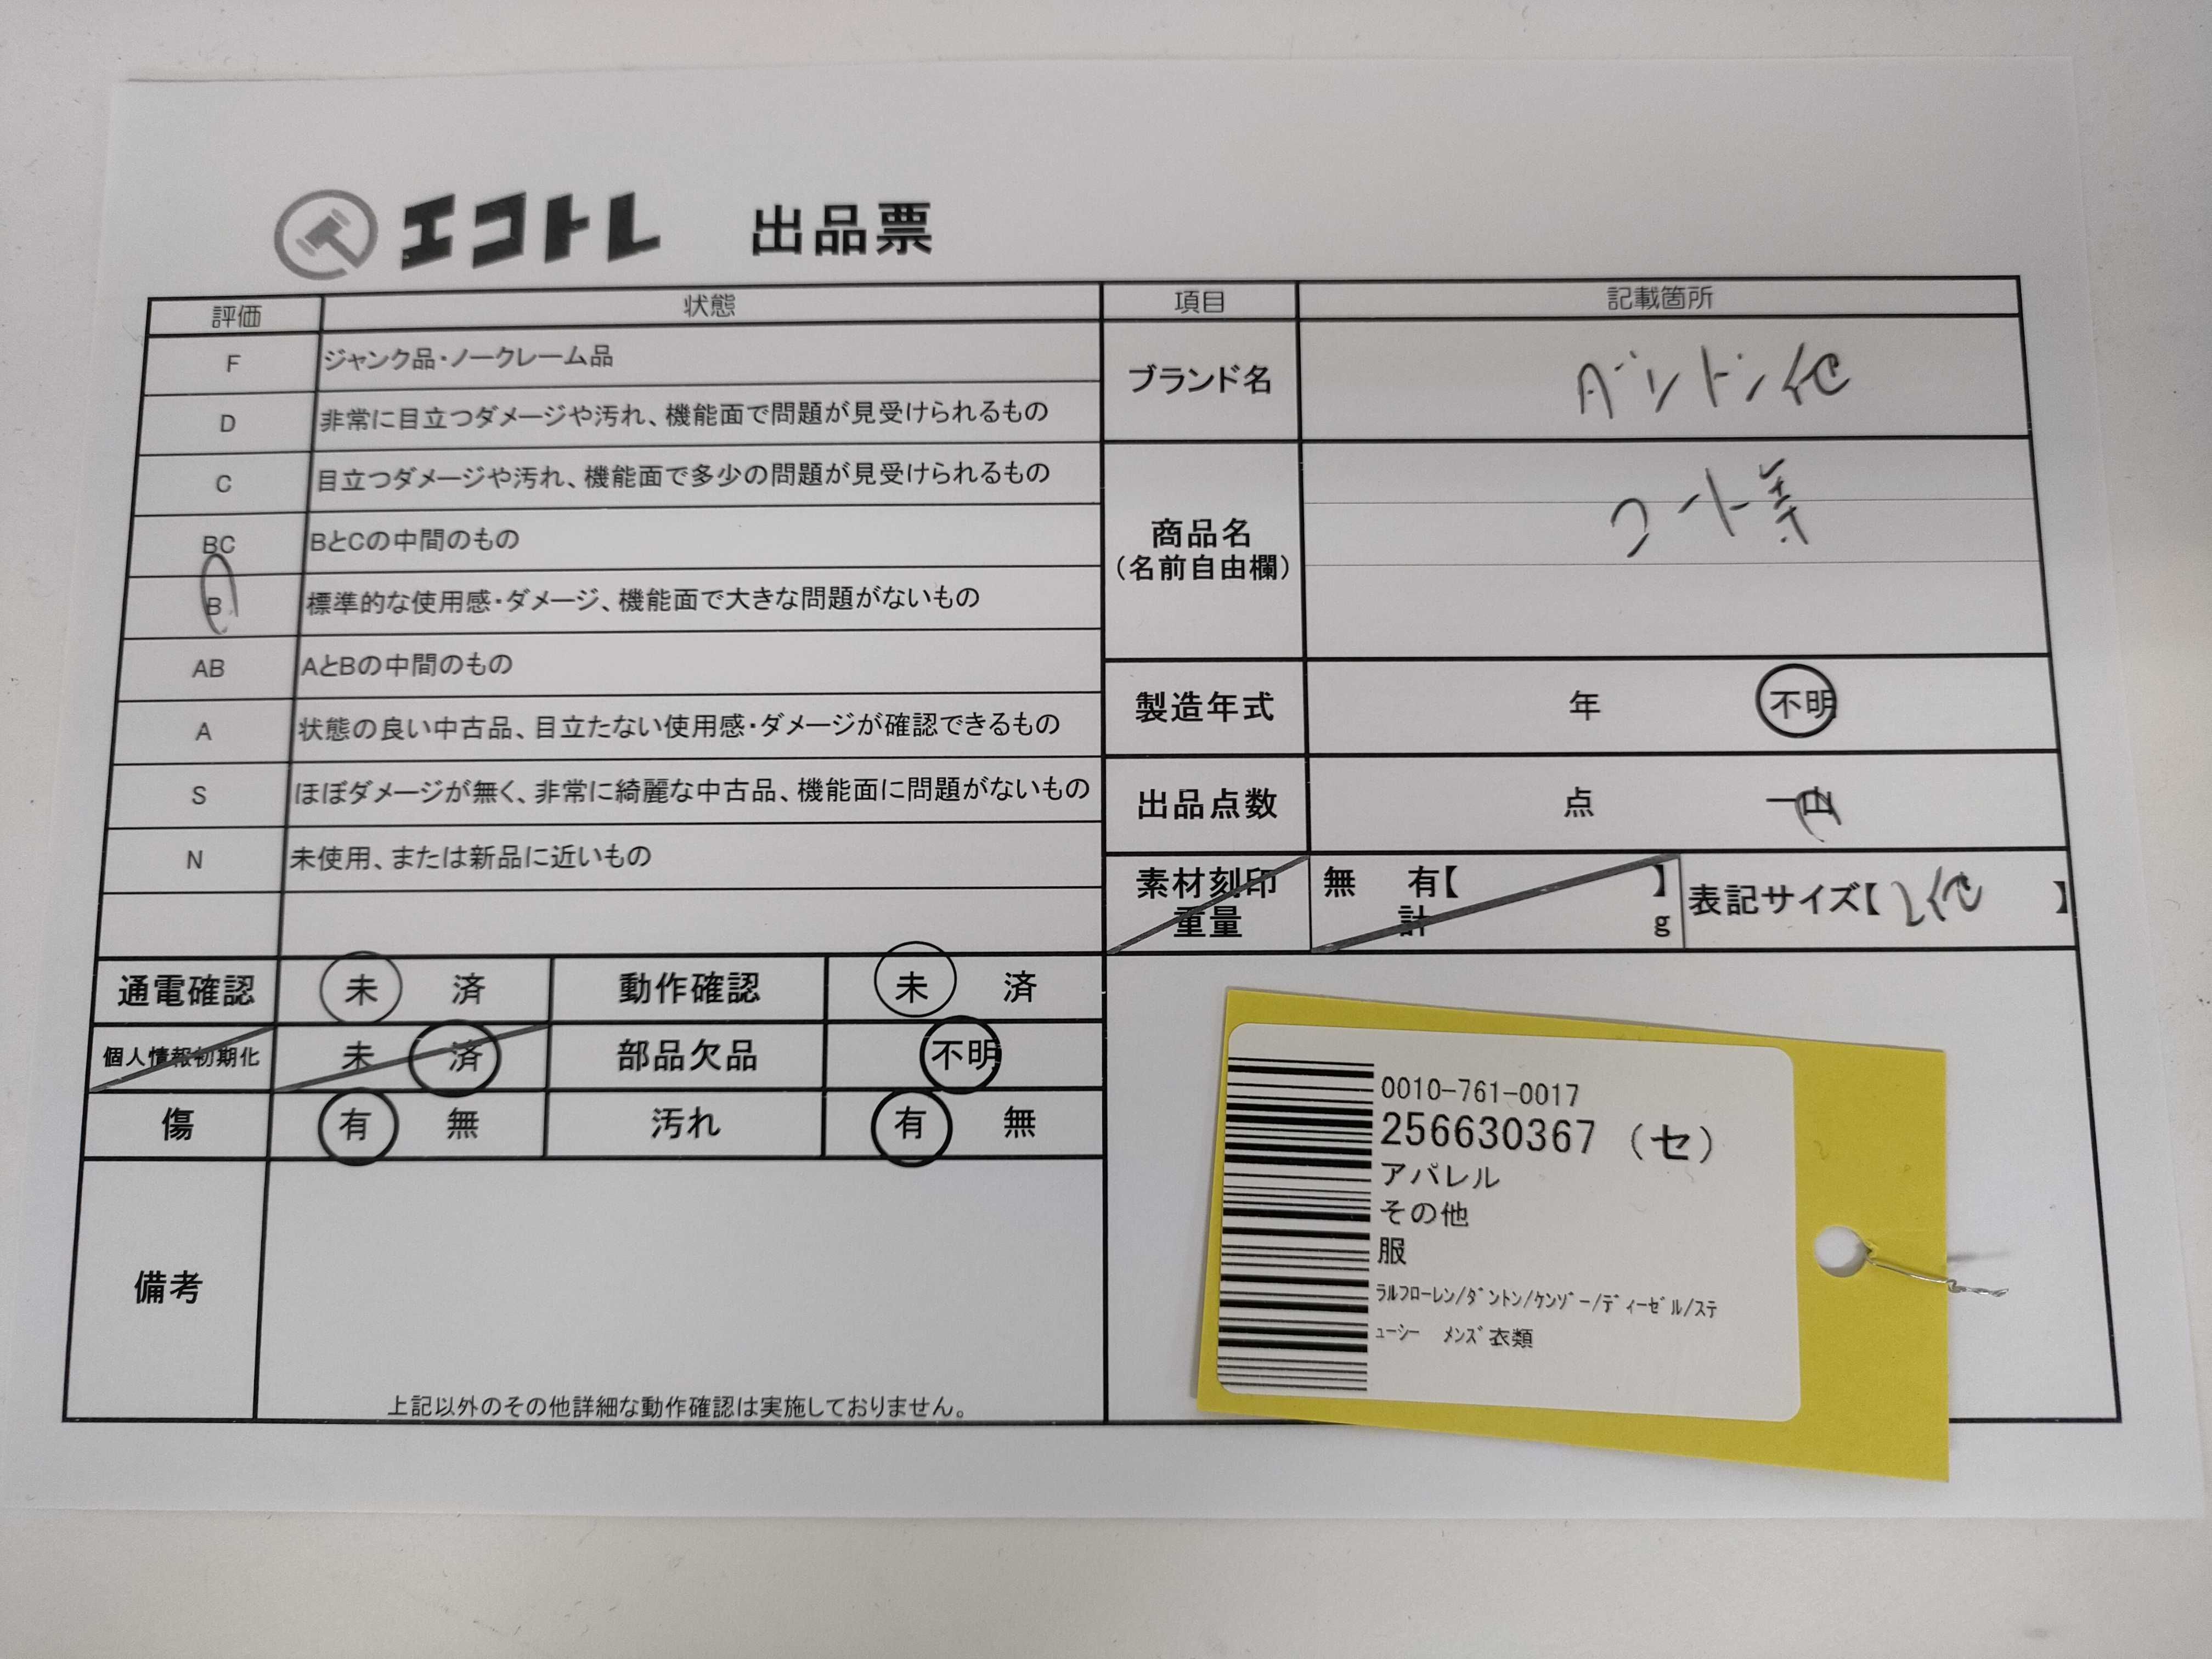 エコトレ 出品票
評価 状態
F ジャンク品・ノークレーム品
D 非常に目立つダメージや汚れ、機能面で問題が見受けられるもの
C 目立つダメージや汚れ、機能面で多少の問題が見受けられるもの
BC BとCの中間のもの
B 標準的な使用感・ダメージ、機能面で大きな問題がないもの
AB AとBの中間のもの
A 状態の良い中古品、目立たない使用感・ダメージが確認できるもの
S ほぼダメージが無く、非常に綺麗な中古品、機能面に問題がないもの
N 未使用、または新品に近いもの
通電確認 未 済 動作確認 未 済
個人情報初期化 未 済 部品欠品 不明
傷 有 無 汚れ 有 無
備考
上記以外のその他詳細な動作確認は実施しておりません。
項目 記載箇所
ブランド名 ダントン他
商品名 コート等
（名前自由欄）
製造年式 年 不明
出品点数 点 一山
素材刻印 無 有【 】 表記サイズ【 L他 】
重量 計 g
0010-761-0017
256630367 (セ)
アパレル
その他
服
ﾗﾙﾌﾛｰﾚﾝ/ﾀﾞﾝﾄﾝ/ｹﾝｿﾞｰ/ﾃﾞｨｰｾﾞﾙ/ｽﾃ
ｭｰｼｰ ﾒﾝｽﾞ衣類